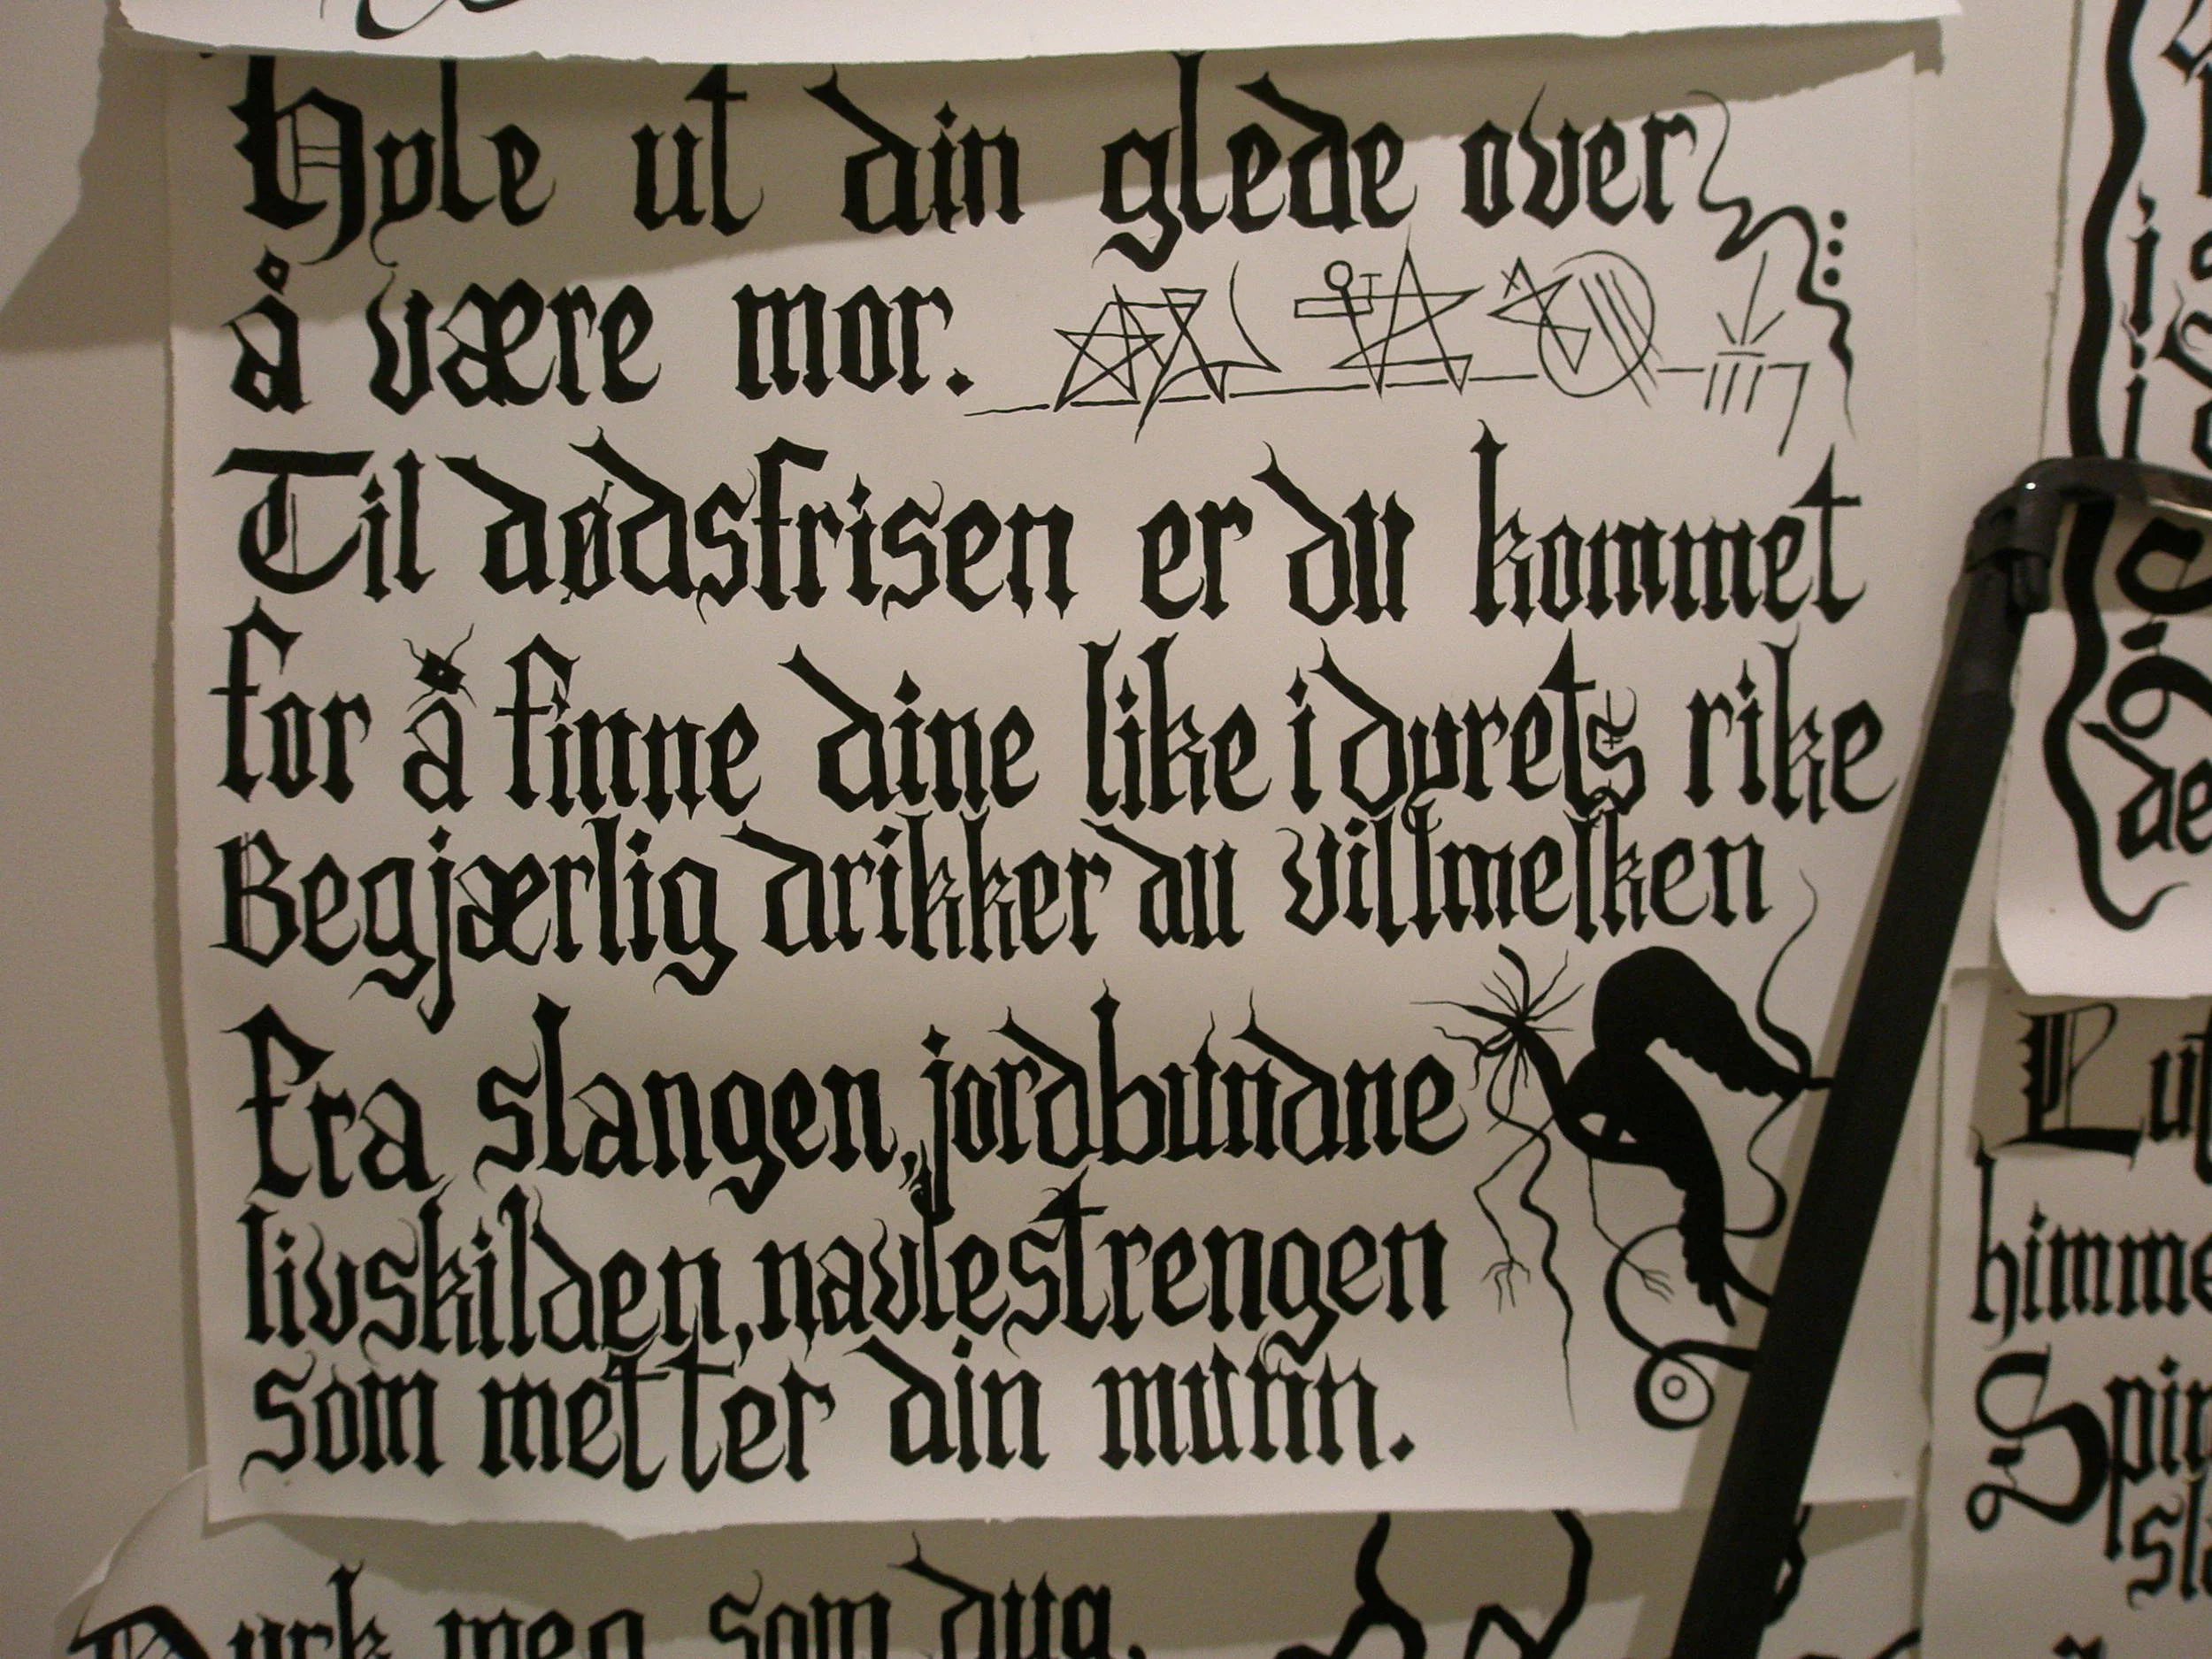 Hyle ut din glede over
å være mor.
Til dødsfrisen er du kommet
for å finne dine like i dyrets rike
Begjærlig drikker du villmelken
fra slangen, jordbundne
livskilden, navlestrengen
som metter din munn.
Dyrk meg som dyg,
himme